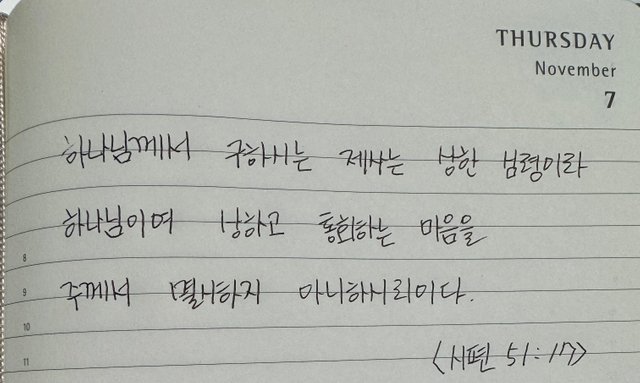 THURSDAY
November
7
하나님께서 구하시는 제사는 상한 심령이라
하나님이여 상하고 통회하는 마음을
8
주께서 멸시하지 아니하시리이다.
9
10
<시편 51:17>
11